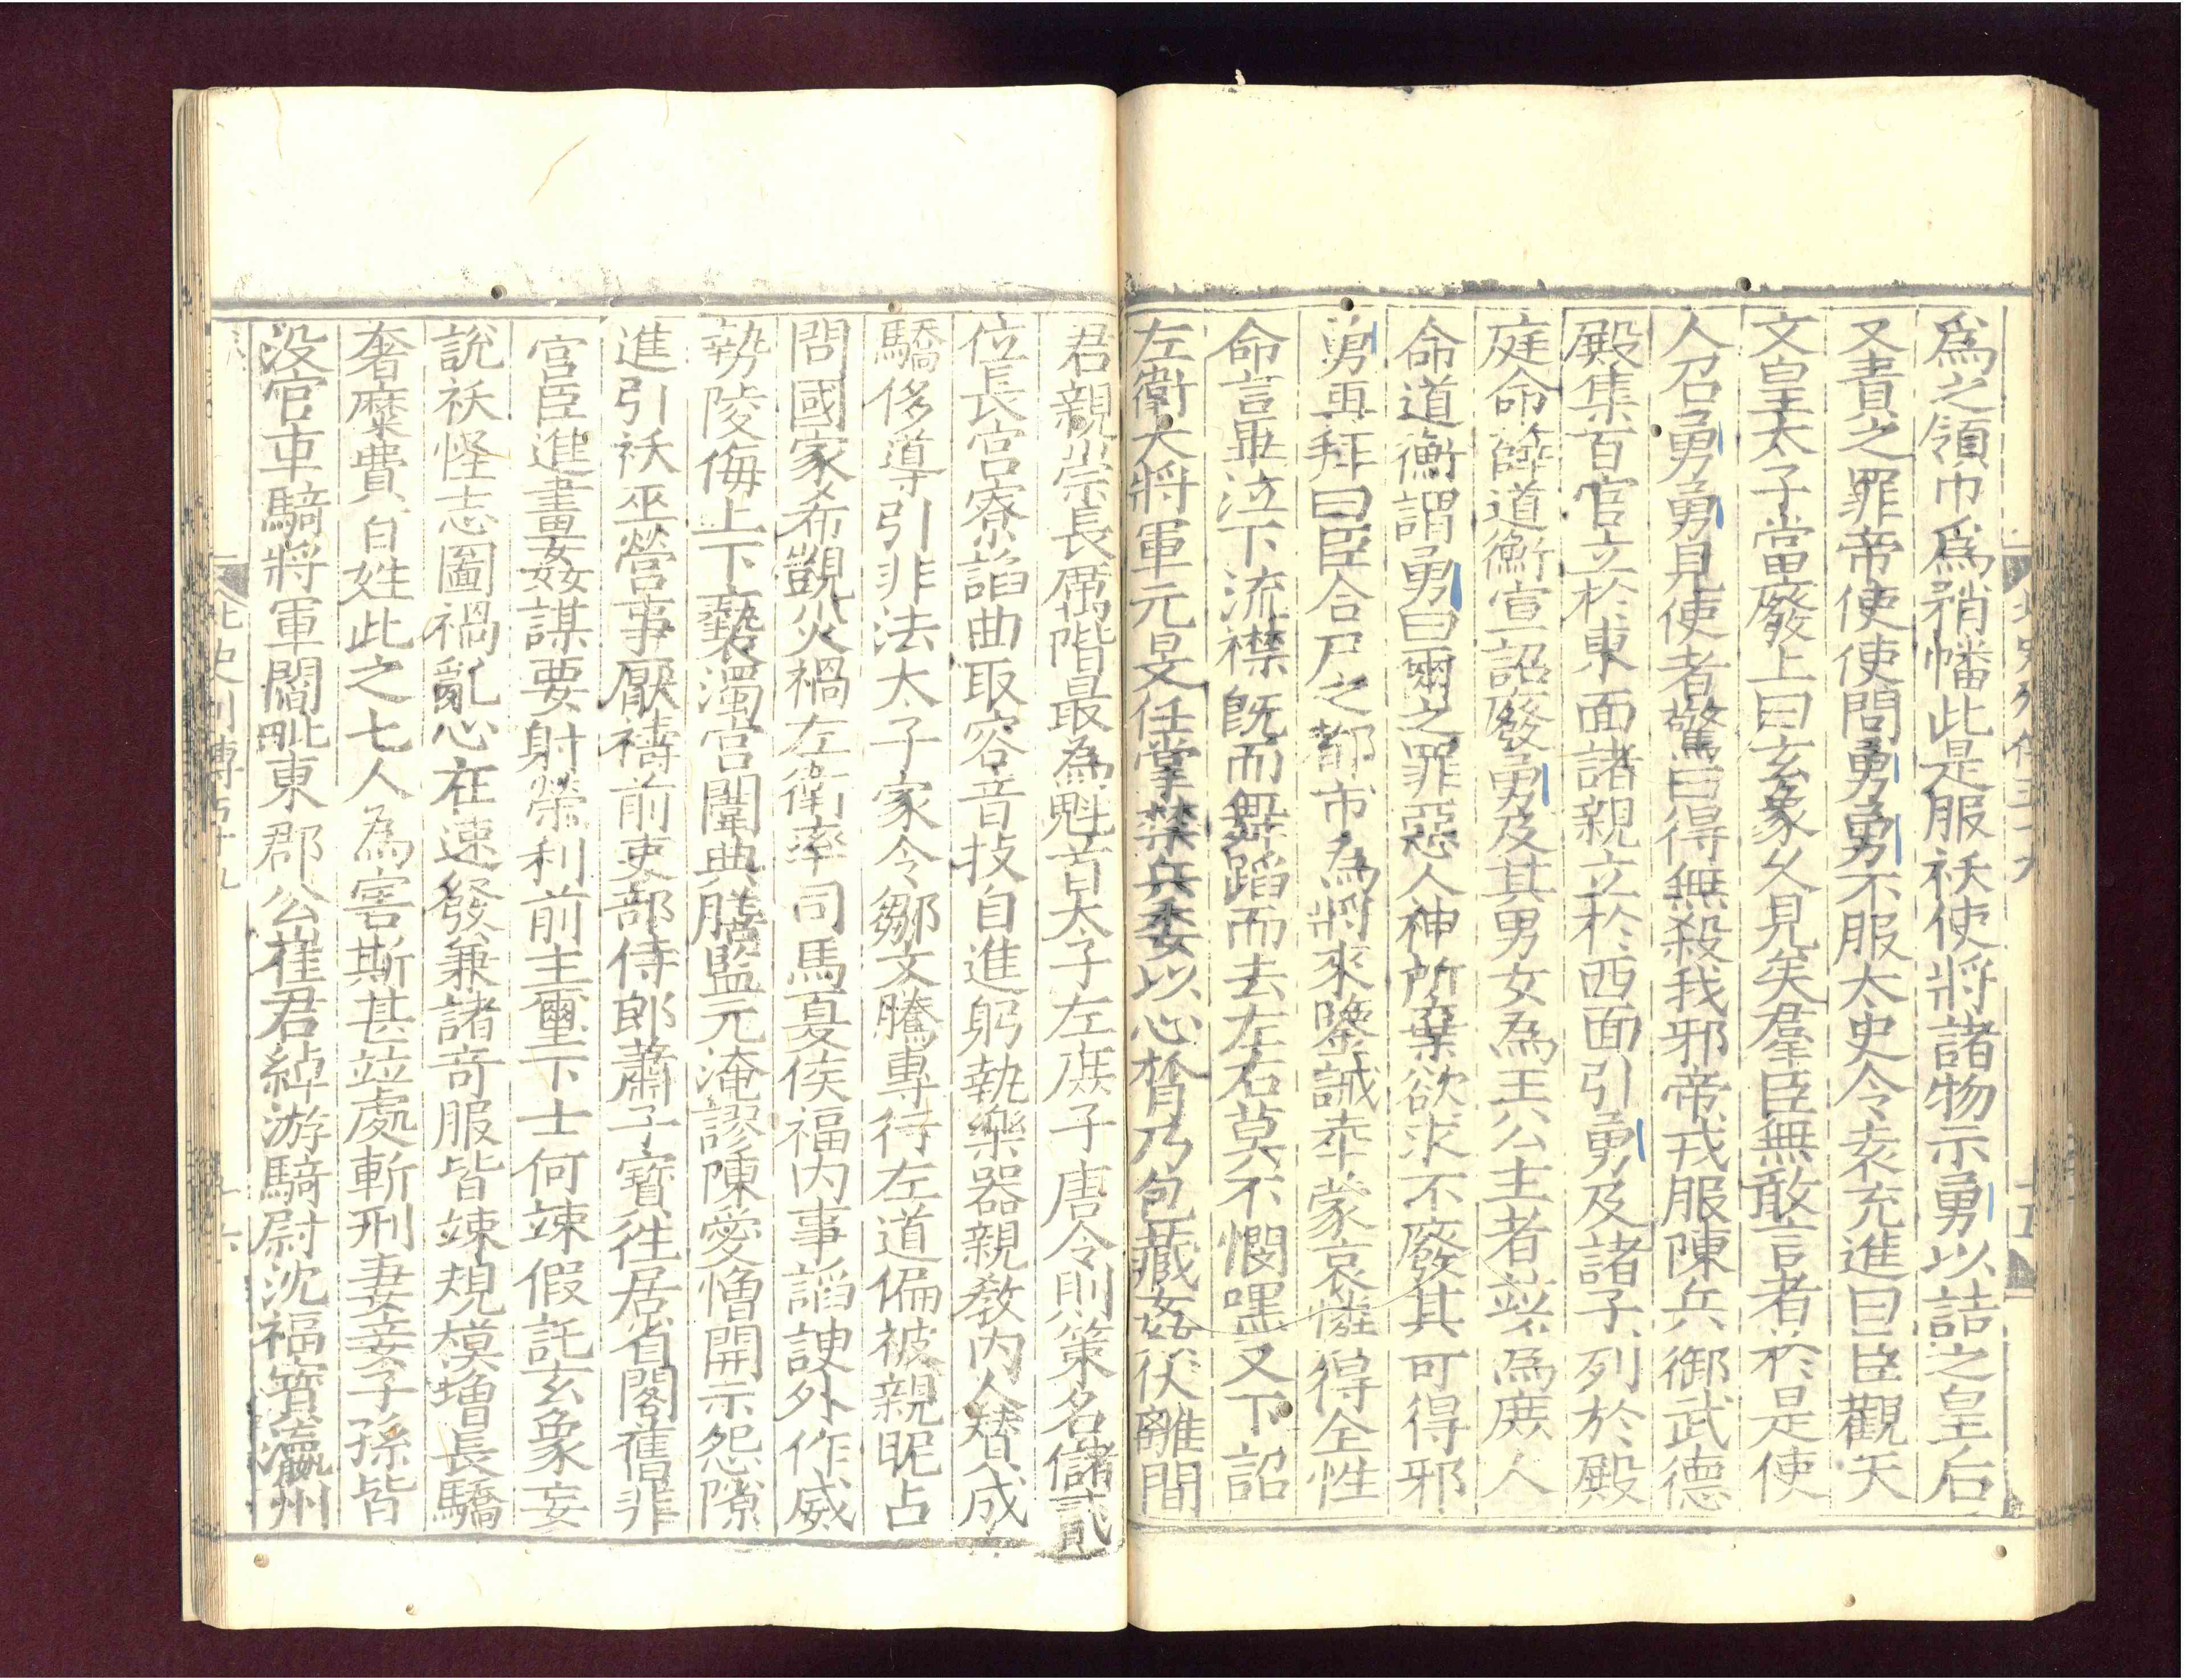 為之領巾為矟幡此是服祅使將諸物示勇以詰之皇后
又責之罪帝使使問勇勇不服太史令袁充進曰臣觀天
文皇太子當廢上曰玄象久見矣羣臣無敢言者於是使
人召勇勇見使者驚曰得無殺我邪帝戎服陳兵御武德
殿集百官立於東面諸親立於西面引勇及諸子列於殿
庭命薛道衡宣詔廢勇及其男女為王公主者並為庶人
命道衡謂勇曰爾之罪惡人神所棄欲求不廢其可得邪
勇再拜曰臣合尸之都市為將來鑒誡幸蒙哀憐得全性
命言畢泣下流襟既而舞蹈而去左右莫不憫嘿又下詔
左衛大將軍元旻任掌禁兵委以心膂乃包藏姦伏離間
君親崇長厲階最為魁首太子左庶子唐令則策名儲貳
位長宮寮諂曲取容音技自進躬執樂器親教內人贊成
驕侈導引非法太子家令鄒文騰專行左道偏被親昵占
問國家希覬災禍左衛率司馬夏侯福內事諂諛外作威
勢陵侮上下褻濁宮闈典膳監元淹謬陳愛憎開示怨隙
進引祅巫營事厭禱前吏部侍郎蕭子寶往居省閣舊非
宮臣進畫姦謀要射榮利前主璽下士何竦假託玄象妄
說祅怪志圖禍亂心在速發兼諸奇服皆竦規模增長驕
奢糜費百姓此之七人為害斯甚並處斬刑妻妾子孫皆
沒官車騎將軍閻毗東郡公崔君綽游騎尉沈福寶瀛州
北史列傳五十九